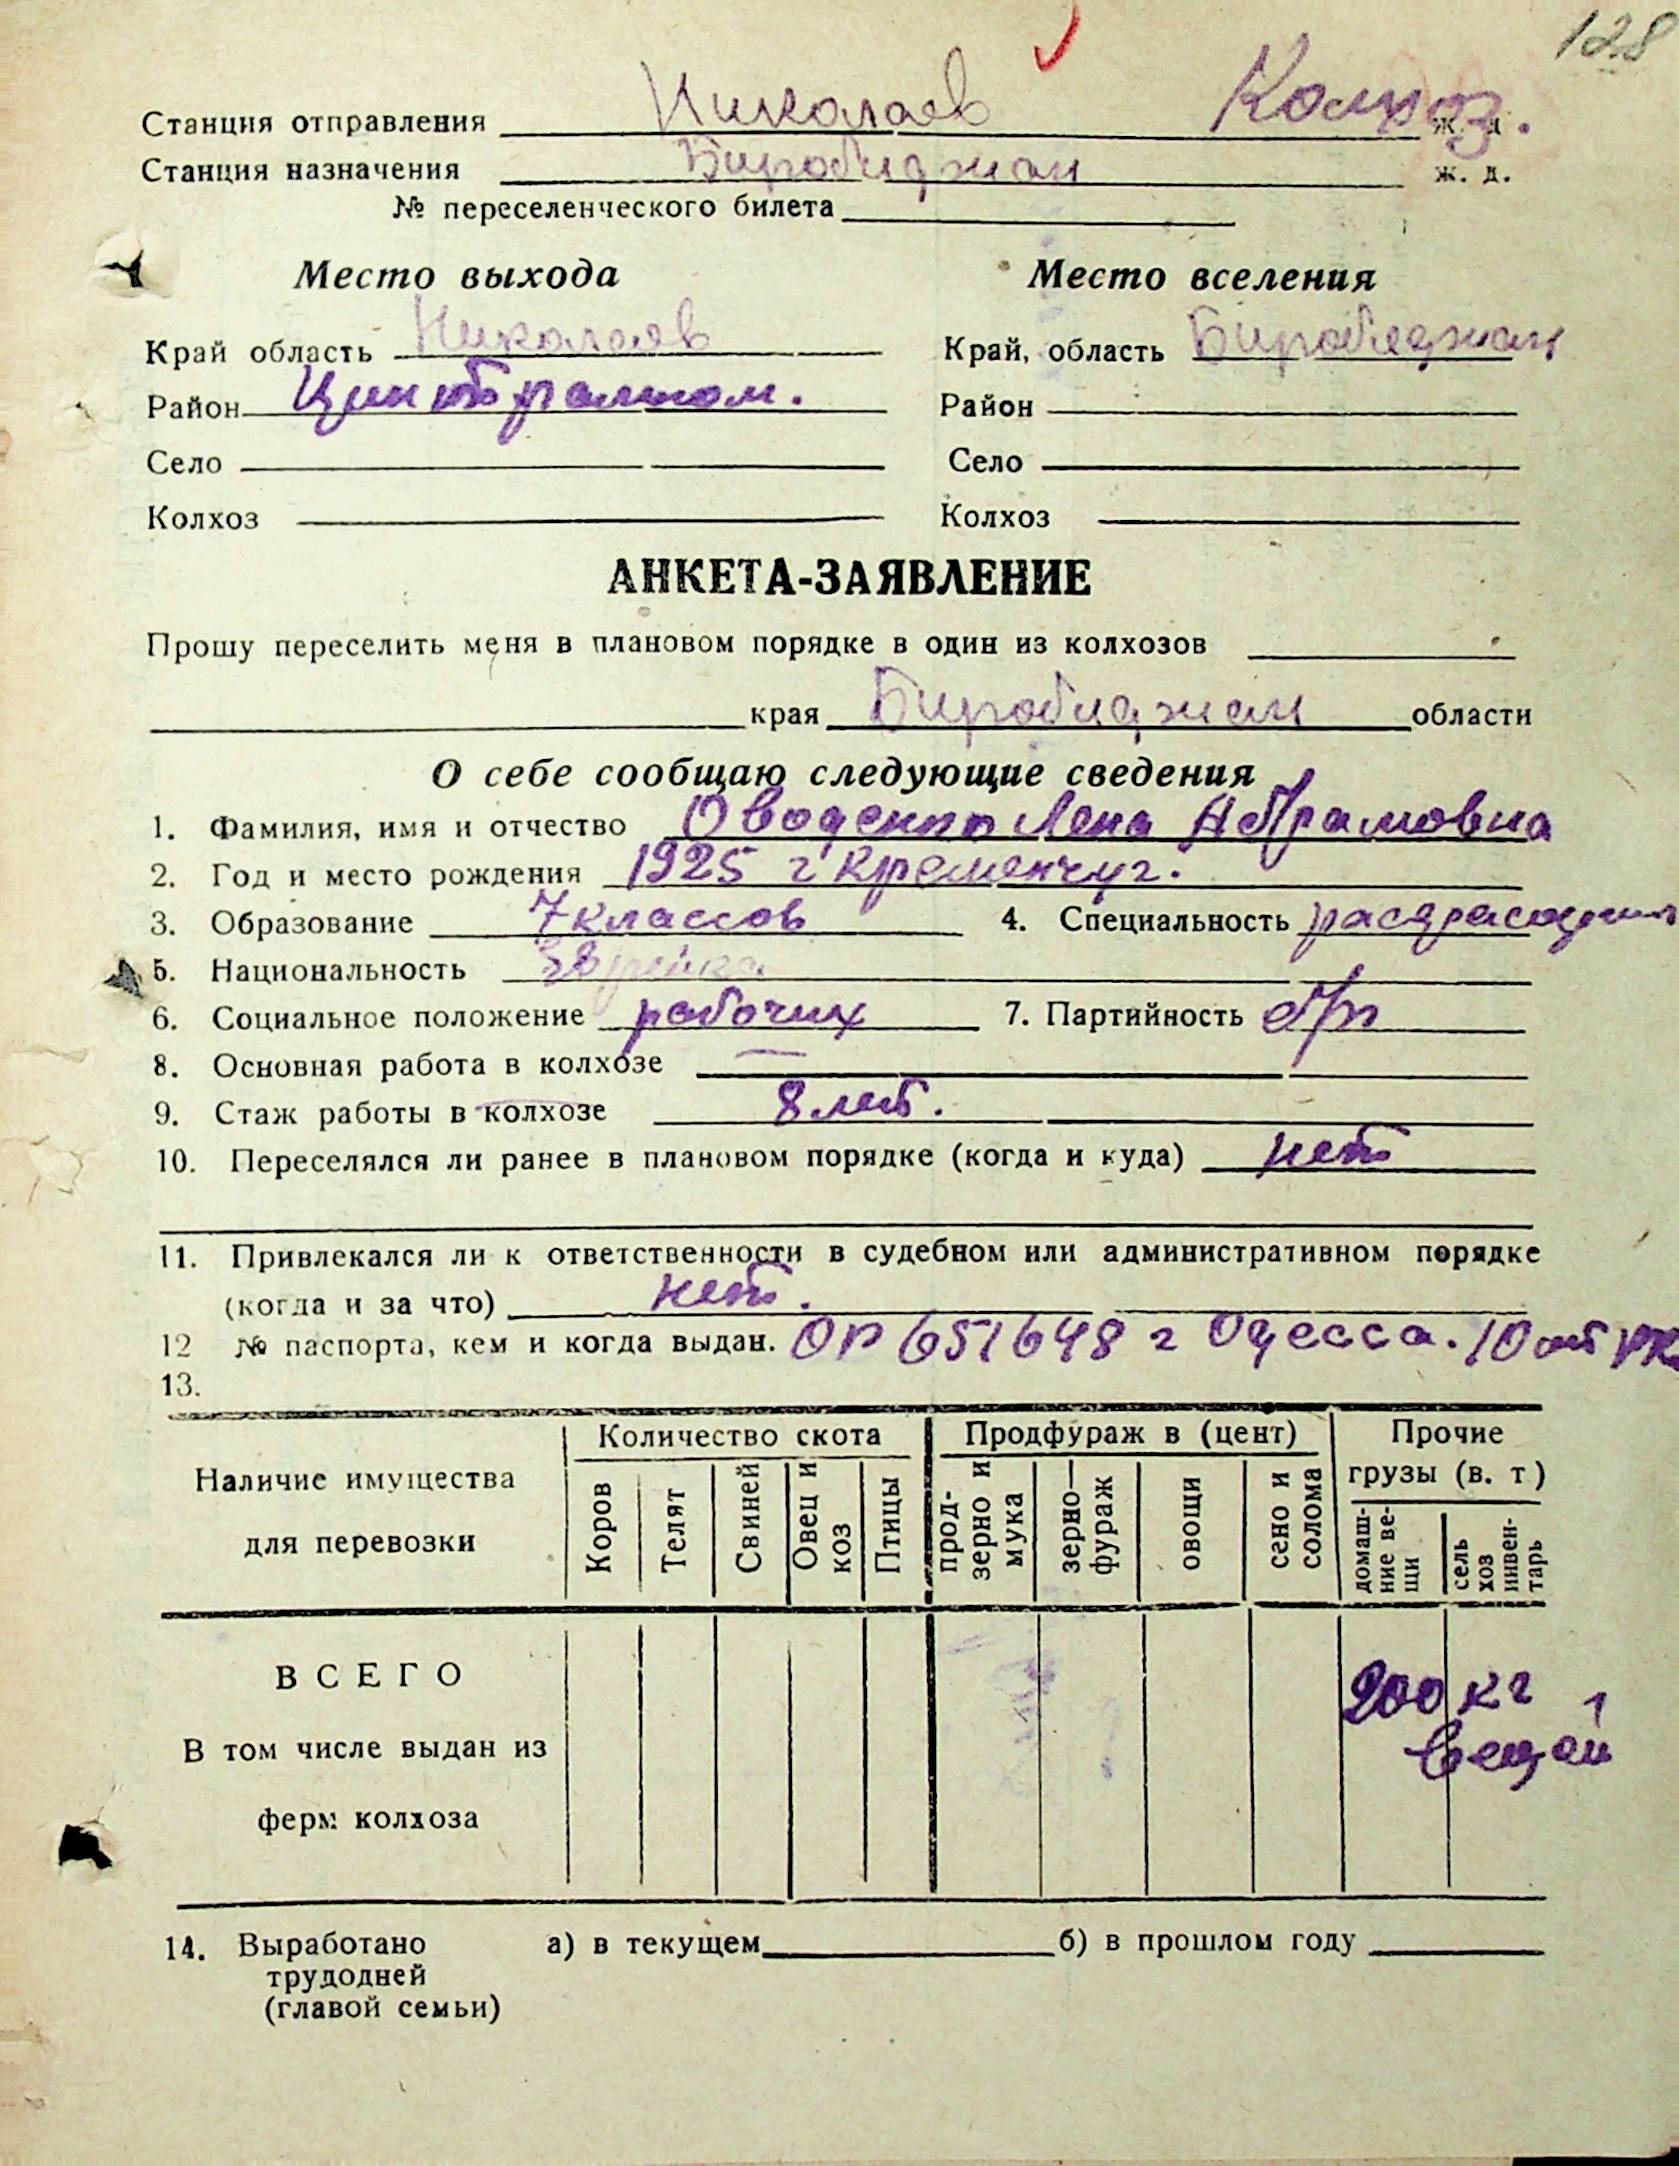 128
Станция отправления Николаев Колхоз. ж. д.
Станция назначения Биробиджан ж. д.
№ переселенческого билета
Место выхода
Край область Николаев
Район
Село
Колхоз
Место вселения
Край, область Биробиджан
Район
Село
Колхоз
АНКЕТА-ЗАЯВЛЕНИЕ
Прошу переселить меня в плановом порядке в один из колхозов
края Биробиджан области
О себе сообщаю следующие сведения
1. Фамилия, имя и отчество Лена Абрамовна
2. Год и место рождения 1925 г Кременчуг.
3. Образование 7 классов 4. Специальность
5. Национальность Еврейка
6. Социальное положение рабочих 7. Партийность б/п
8. Основная работа в колхозе —
9. Стаж работы в колхозе 8 лет.
10. Переселялся ли ранее в плановом порядке (когда и куда) нет
11. Привлекался ли к ответственности в судебном или административном порядке
(когда и за что) нет.
12 № паспорта, кем и когда выдан. 651648 г Одесса. 10
13.
Наличие имущества
для перевозки
Количество скота
Коров
Телят
Свиней
Овец и
коз
Птицы
Продфураж в (цент)
прод-
зерно и
мука
зерно—
фураж
овощи
сено и
солома
Прочие
грузы (в. т)
домаш-
ние ве-
щи
сель
хоз
инвен-
тарь
ВСЕГО
200 кг
вещей
В том числе выдан из
ферм колхоза
14. Выработано а) в текущем б) в прошлом году
трудодней
(главой семьи)